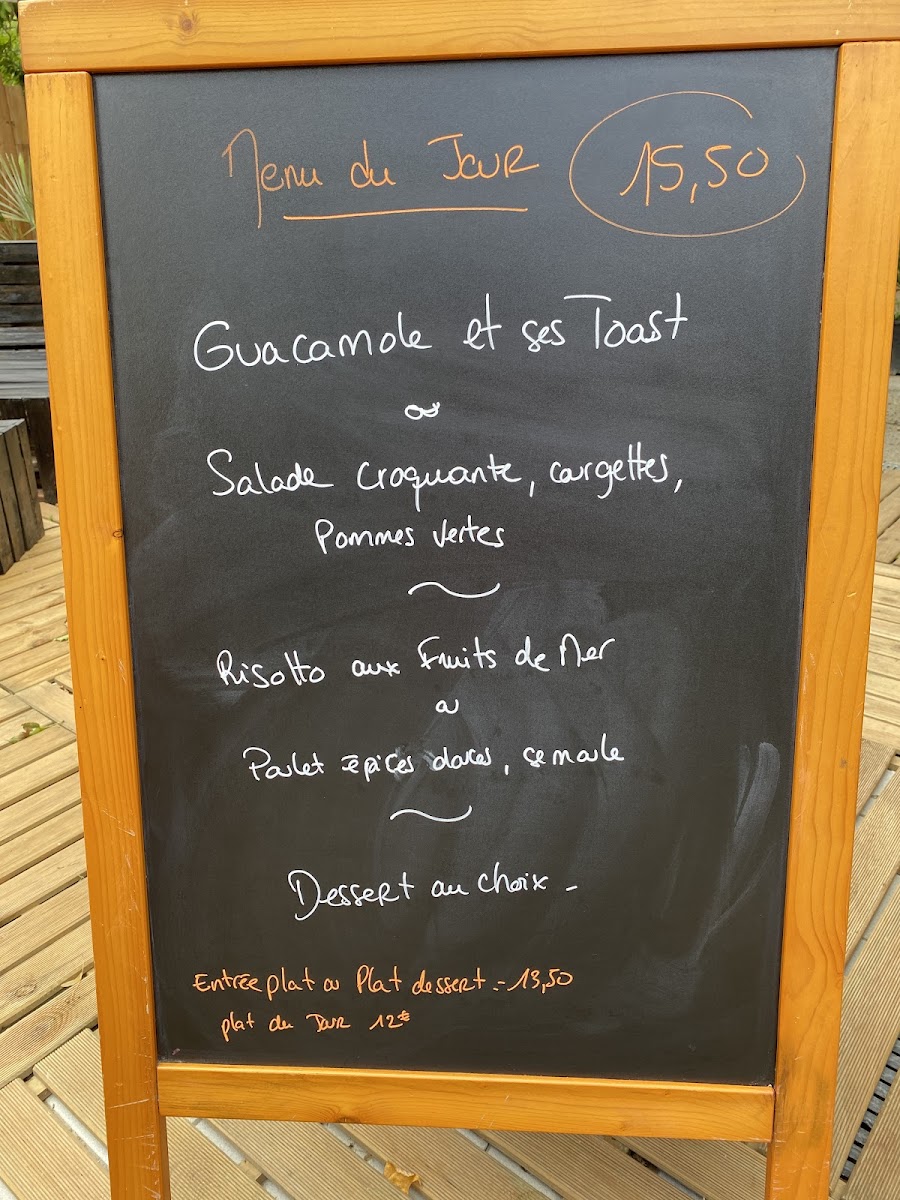 Menu du Jour 15,50
Guacamole et ses Toast
ou
Salade croquante, courgettes,
Pommes vertes
Risotto aux Fruits de Mer
ou
Poulet épices douces, semoule
Dessert au choix -
Entrée plat ou Plat dessert :- 13,50
plat du Jour 12€